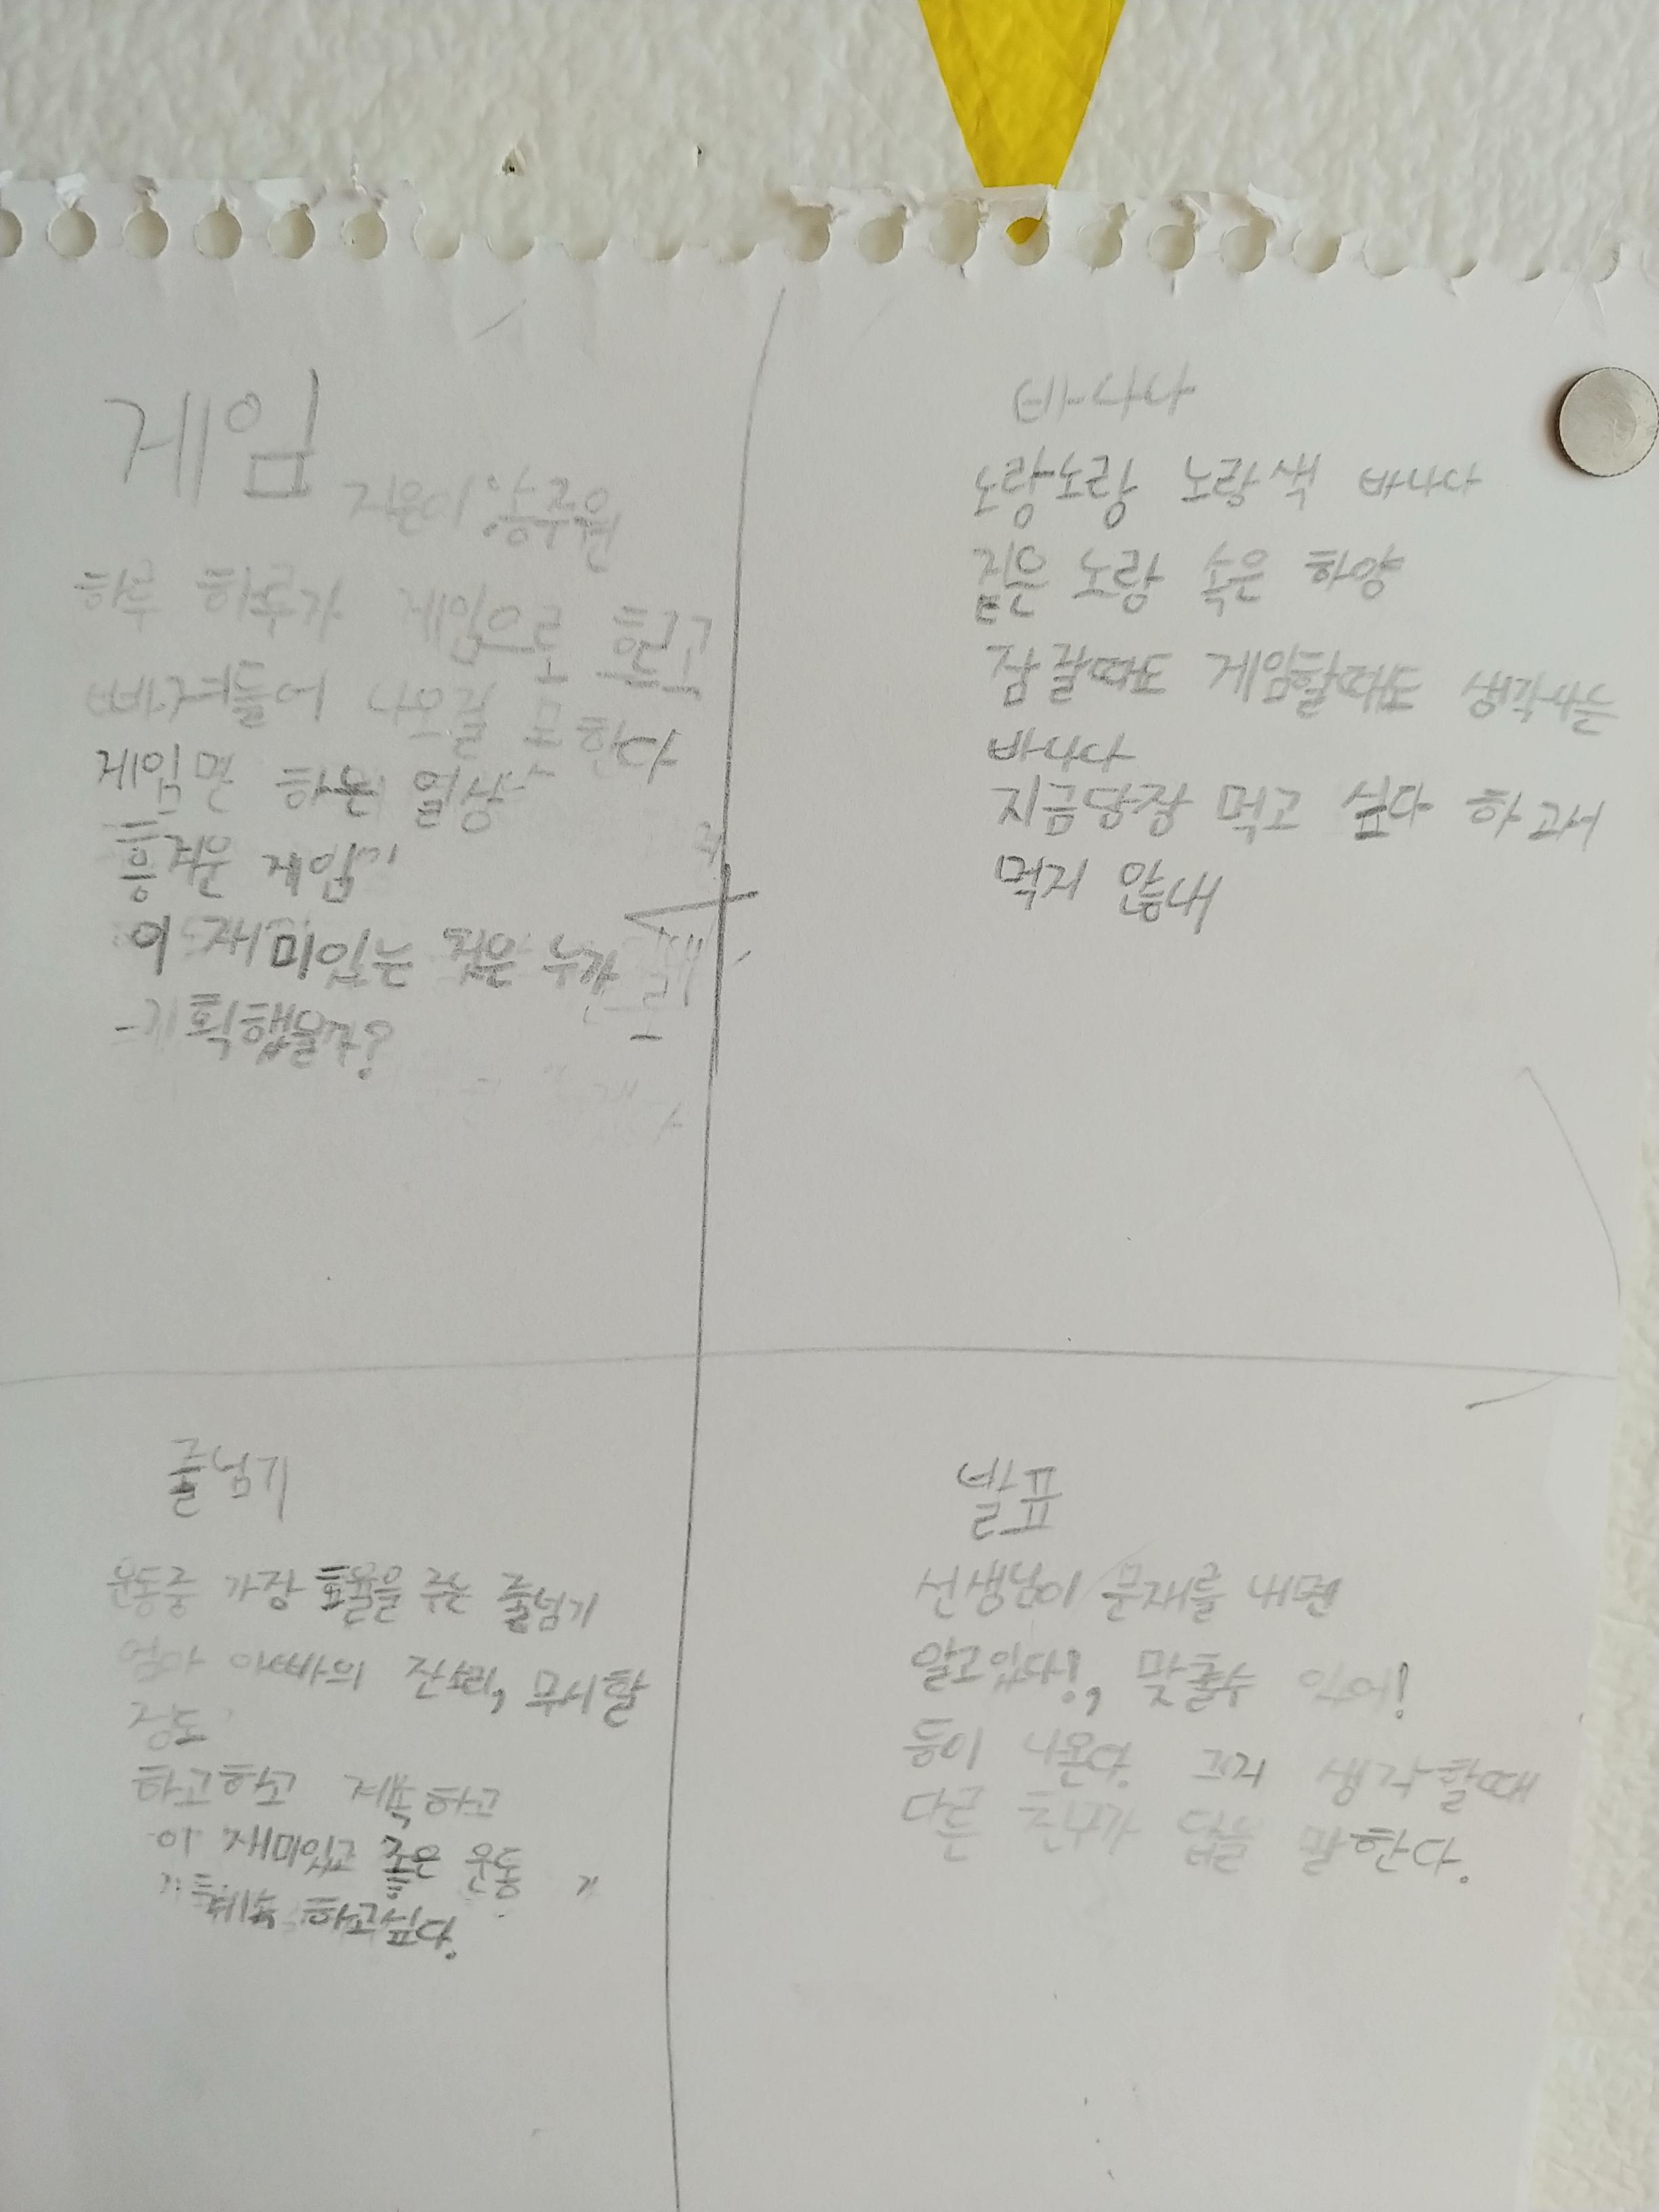 게임
지은이:양주원
하루 하루가 게임으로 흐르고
빠져들어 나오질 못한다
게임만 하는 일상
흥겨운 게임
이 재미있는 것은 누가
기획했을까?
바나나
노랑노랑 노랑색 바나나
겉은 노랑 속은 하양
잠잘때도 게임할때도 생각나는
바나나
지금당장 먹고 싶다 하고서
먹지 않내
줄넘기
운동중 가장 효율을 주는 줄넘기
엄마 아빠의 잔소리, 무시할
정도
하고하고 계속하고
이 재미있고 좋은 운동
계속 하고싶다.
발표
선생님이 문재를 내면
알고있다!, 맞출수 있어!
등이 나온다. 그저 생각할때
다른 친구가 답을 말한다.